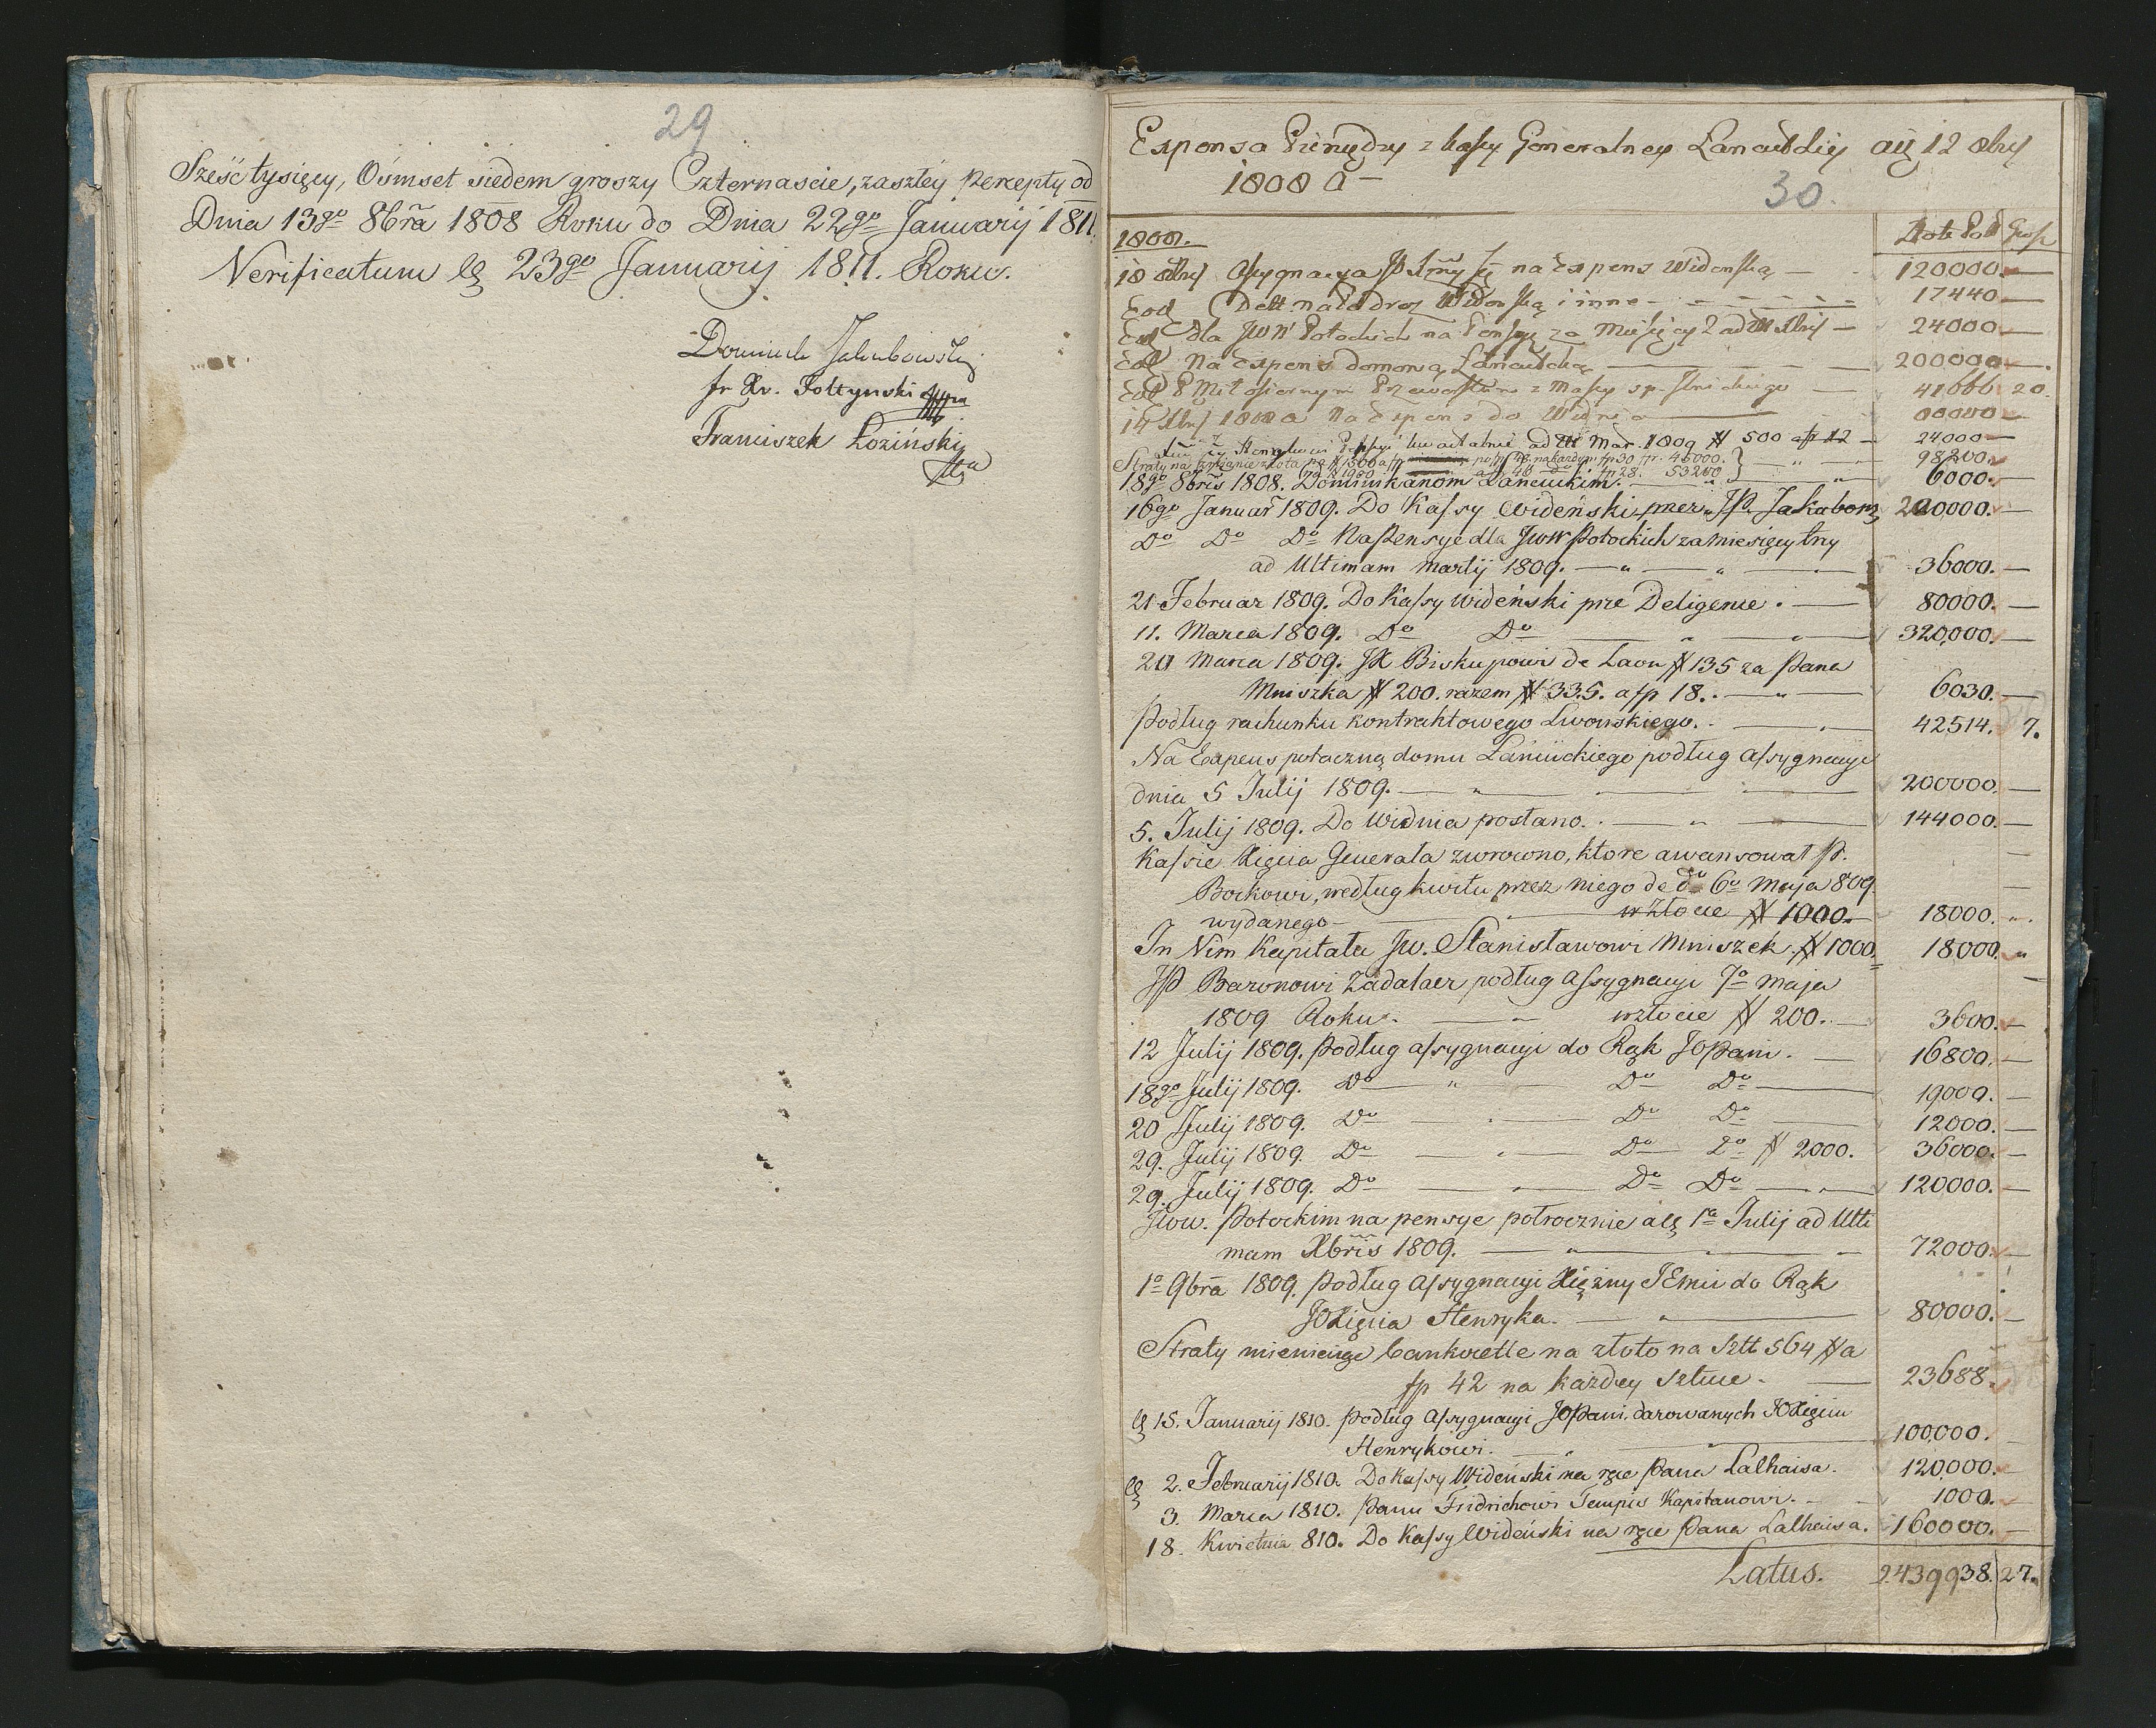 29
Sześć tysięcy, Ośmset siedem groszy Czternascie, zaszłey Percepty od
Dnia 13go 8bra 1808 Roku do Dnia 22go Januarij 1811.
Verificatum 23go Januarij 1811. Roku.
Dominik Jakubowski
Fr Xr. Foltynski
Franciszek Łoziński
Expensa Pieniędzy z kassy Generalney Lancutskiey 12
1808 a
30.
1808. Złote Pol Grosz
18 Assygnacya na Expens Widenską — 120000. —
Eod Dett na Podroz Widenską i inne — 17440 —
Eod Dla JWW Potockich na Pensyę za Miesięcy 2 ad — 24000 —
Eod Na Expens domową Lancutską 200000 —
Eod P Miłosiernym Przeworskim z Massy sp. 41666 20.
14 1808 a Na Expens do Widnia — 80000 —
Henrykowi ad Mar. 1809 # 500 a fp 12 — 24000 —
Straty na zmianie złota na # 1500 a fp na każdym fp 30 fr. 45000. 98200. —
1900 a fp 46 do fp 28. 53200
18go 8bris 1808. Dominikanom Lancuckim. 6000. —
16go Januar 1809. Do Kassy Widenski przez JP. Jakubows 200,000. —
Do Do Do Na Pensye dla JWW Potockich za miesięcy trzy
ad Ultimam Martij 1809. — 36000. —
21 Februar 1809. Do Kassy Widenski prze Deligense. — 80000. —
11. Marca 1809. Do Do — 320,000. —
20 Marca 1809. JX Biskupowi de Laon # 135 za Pana
Mniszka # 200. razem # 335. a fp 18. — 6030. —
Podług rachunku kontraktowego Lwowskiego. — 42514. 7.
Na Expens potoczną domu Lancuckiego podług Assygnacyi
dnia 5 Julij 1809. — 200000. —
5. Julij 1809. Do Widnia posłano. — 144000. —
Kassie Xięcia Generała zwrocono, ktore awansował P.
Bockowi, według kwitu przez niego de do 6o Maja 809.
wydanego — w złocie # 1000. — 18000. „
In Vim Kapitału JW. Stanisławowi Mniszek # 1000. 18000. „
JP Baronowi Zadalaer podług Assygnacyi 7o Maja
1809 Roku. — w złocie # 200. — 3600. —
12 Julij 1809. Podług assygnacyi do Rąk JOPani. — 16800. —
18go Julij 1809. Do — Do Do — 19000. —
20 Julij 1809. Do — Do Do — 12000. —
29. Julij 1809. Do — Do Do # 2000. 36000. —
29. Julij 1809. Do — Do Do — 120,000. —
JWW. Potockim na pensye połrocznie a 1a Julij ad Ulti
mam Xbris 1809. — 72000. —
1o 9bra 1809. Podług Assygnacyi Xiężny JEmci do Rąk
JOXięcia Henryka. — 80000. —
Straty mieniące bankocetle na złoto na Sztt 564 # a
fp 42 na każdey Sztuce. — 23688.
15. Januarij 1810. Podług Assygnacyi JOPani. darowanych JOXięciu
Henrykowi. — 100,000. —
2. Februarij 1810. Do Kassy Widenski na ręce Pana Lalhaisa. 120,000. —
3. Marca 1810. Panu Fridrichowi Tempis Kapitanowi. — 1000. —
18. Kwietnia 810. Do Kassy Widenski na ręce Pana Lalhaisa. 160000. —
Latus. 2439938. 27.